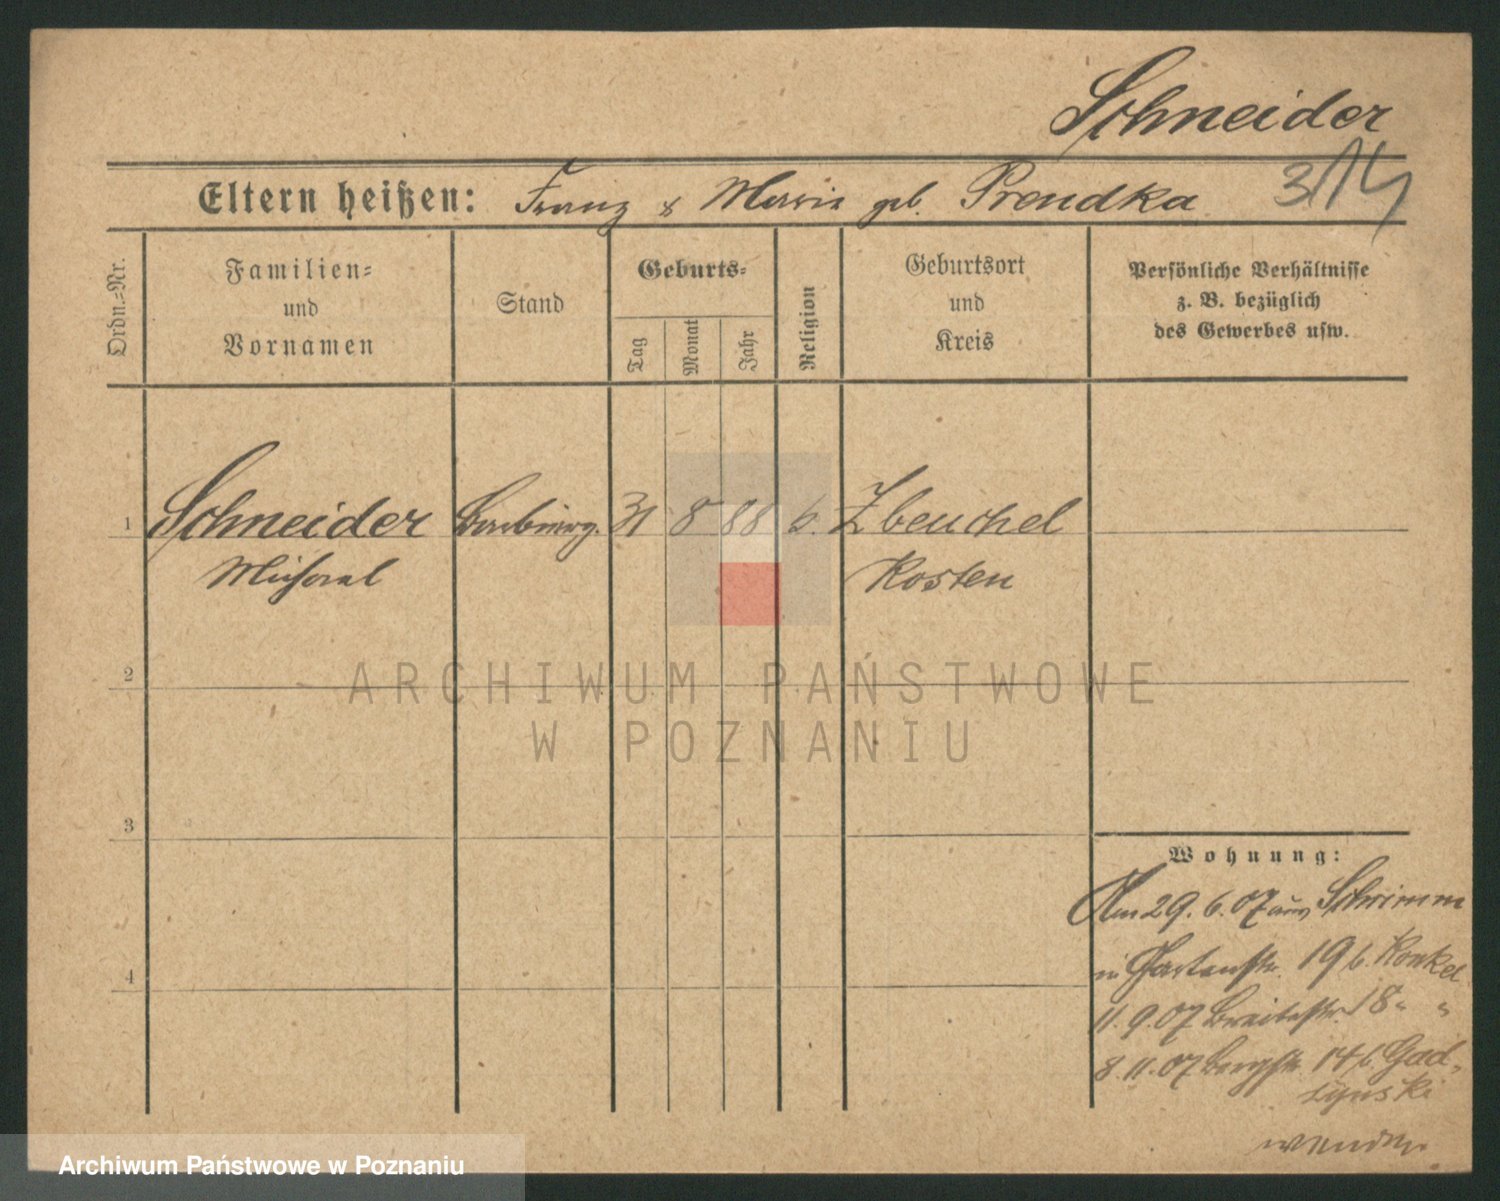 Schneider
Eltern heißen: Franz & Maria geb. Prendka 3/14
Ordn.=Nr.
Familien=
und
Vornamen
Stand
Geburts=
Tag
Monat
Jahr
Religion
Geburtsort
und
Kreis
Persönliche Verhältnisse
z. B. bezüglich
des Gewerbes usw.
1 Schneider 31 8 88 k. Zbenchel
Michael Kosten
2
ARCHIWUM PAŃSTWOWE
W POZNANIU
3
Wohnung:
Am 29. 6. 07 aus Schrimm
in Gartenstr. 19 b. Konkel
4
11. 9. 07 Breitestr. 18 " "
8. 11. 07 Bergstr. 14 b. Gad-
zynski
wenden.
Archiwum Państwowe w Poznaniu